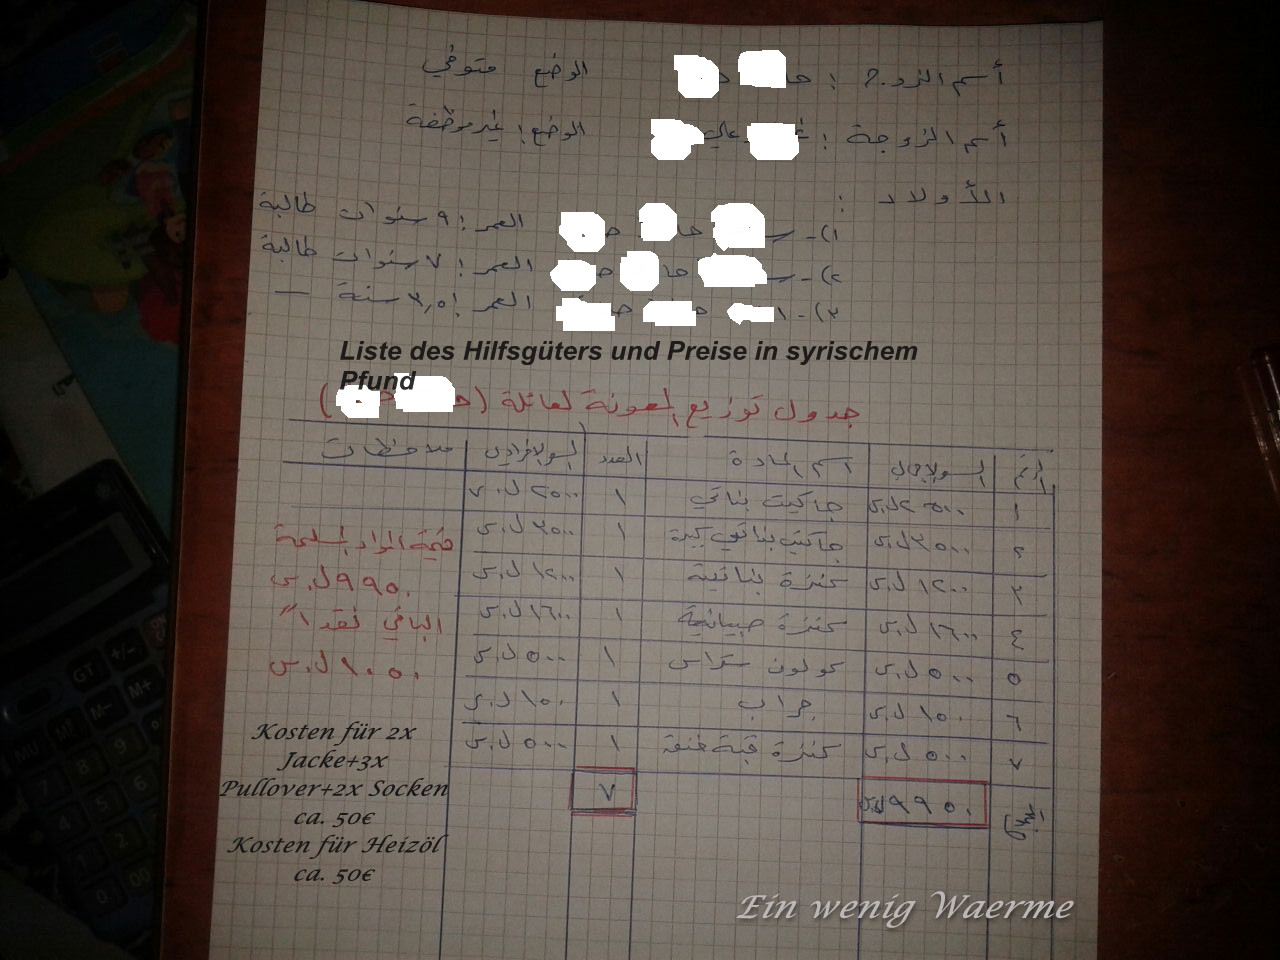 أسم الزوج : حا الوضع متوفي
أسم الزوجة : علي الوضع : غير موظفة
الأولاد :
١) - العمر : ٩ سنوات طالبة
٢) - العمر : ٧ سنوات طالبة
٣) - العمر : ٣,٥ سنة —
Liste des Hilfsgüters und Preise in syrischem
Pfund
جدول توزيع المعونة لعائلة ( )
الرقم السعر الإجمالي اسم المادة العدد السعر الإفرادي ملاحظات
١ ٢٥٠٠ ل.س جاكيت بناتي ١ ٢٥٠٠ ل.س
٢ ٣٥٠٠ ل.س جاكيت بناتي كبيرة ١ ٣٥٠٠ ل.س
٣ ١٢٠٠ ل.س كنزة بناتية ١ ١٢٠٠ ل.س
٤ ١٦٠٠ ل.س كنزة صبيانية ١ ١٦٠٠ ل.س
٥ ٥٠٠ ل.س كولون ستراس ١ ٥٠٠ ل.س
٦ ١٥٠ ل.س جراب ١ ١٥٠ ل.س
٧ ٥٠٠ ل.س كنزة قبة خنقة ١ ٥٠٠ ل.س
٩٩٥٠ ل.س ٧
قيمة المواد المسلمة
٩٩٥٠ ل.س
الباقي نقداً
١٠٥٠ ل.س
Kosten für 2x
Jacke+3x
Pullover+2x Socken
ca. 50€
Kosten für Heizöl
ca. 50€
Ein wenig Waerme
GT
+/-
M-
M+
MU
9
8
7
6
5
4
3
2
1
0
00